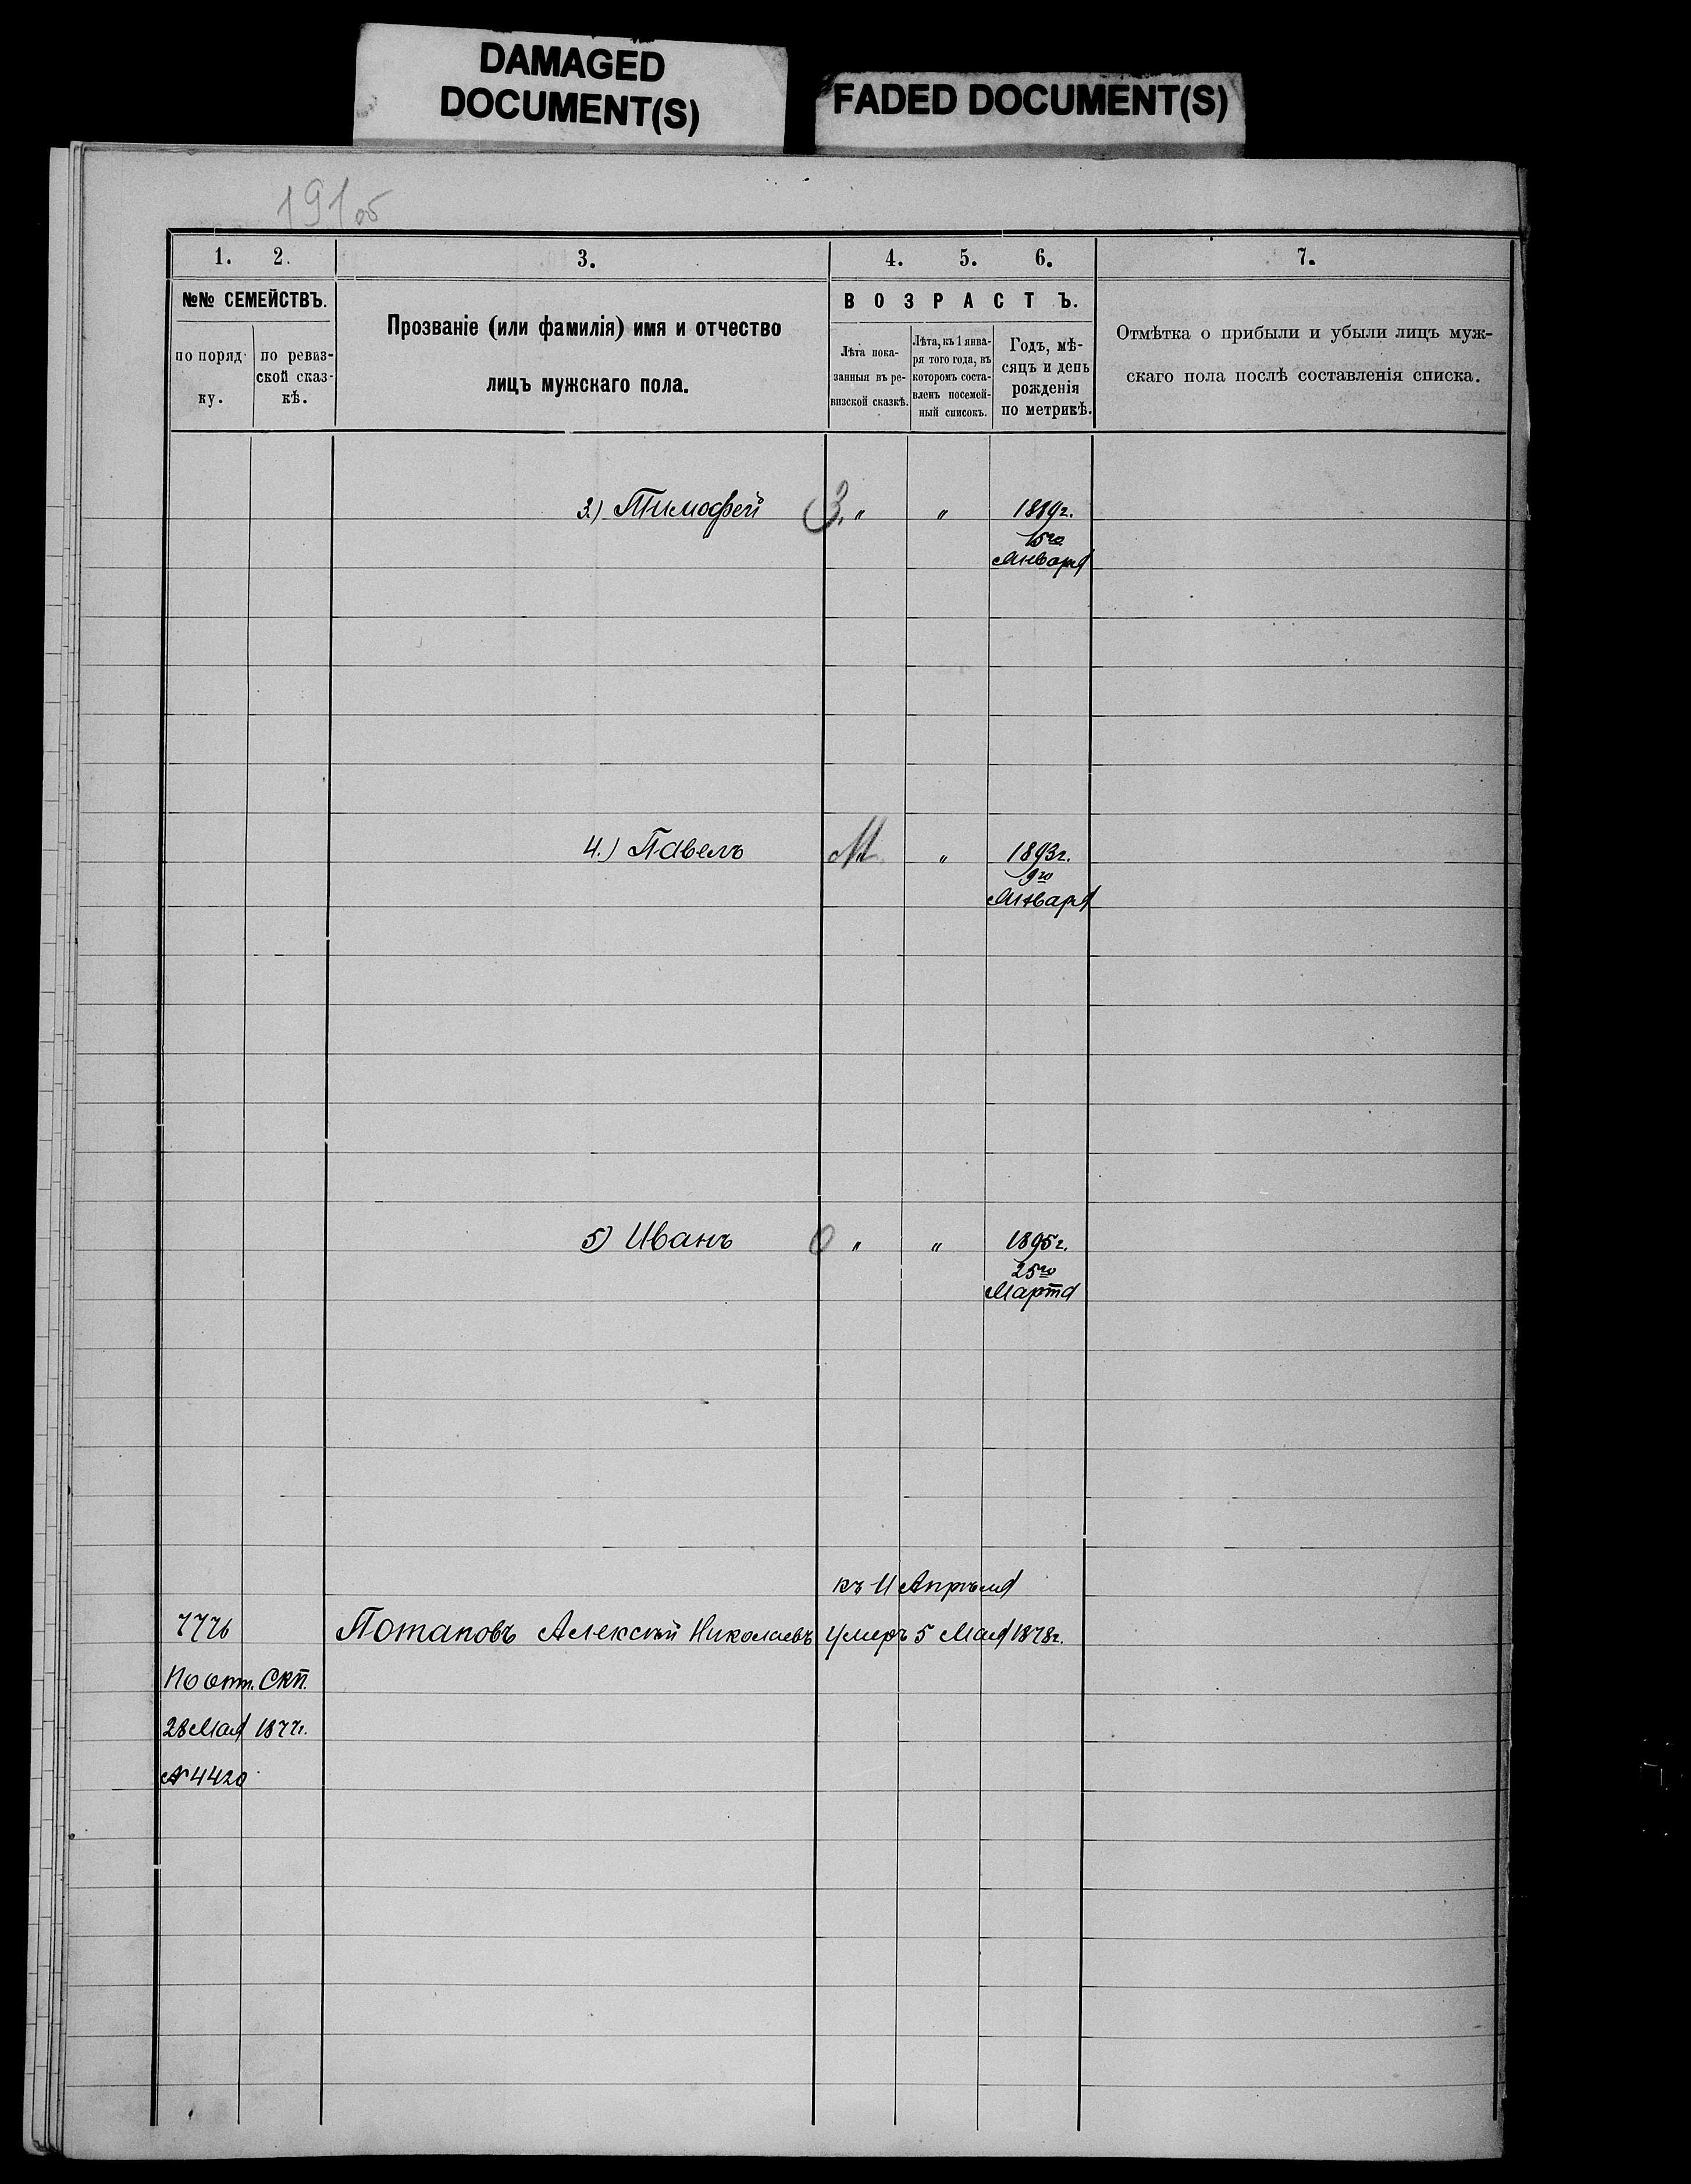 DAMAGED
DOCUMENT(S)
FADED DOCUMENT(S)
191 об
1. 2. 3. 4. 5. 6. 7.
№№ СЕМЕЙСТВЪ.
по поряд-
ку.
по ревиз-
ской сказ-
кѣ.
Прозваніе (или фамилія) имя и отчество
лицъ мужскаго пола.
ВОЗРАСТЪ.
Лѣта пока-
занныя въ ре-
визской сказкѣ.
Лѣта, къ 1 янва-
ря того года, въ
которомъ соста-
вленъ посемей-
ный списокъ.
Годъ, мѣ-
сяцъ и день
рожденія
по метрикѣ.
Отмѣтка о прибыли и убыли лицъ муж-
скаго пола послѣ составленія списка.
3.) Тимофей З. " " 1889г.
15го
Января
4.) Павелъ М " 1893г.
9го
Января
5) Иванъ О " " 1895г.
25го
Марта
къ 11 Апрѣля
7776 Потаповъ Алексѣй Николаевъ умеръ 5 Мая 1878г.
По отн. Скп.
28 Мая 1877г.
№ 4420